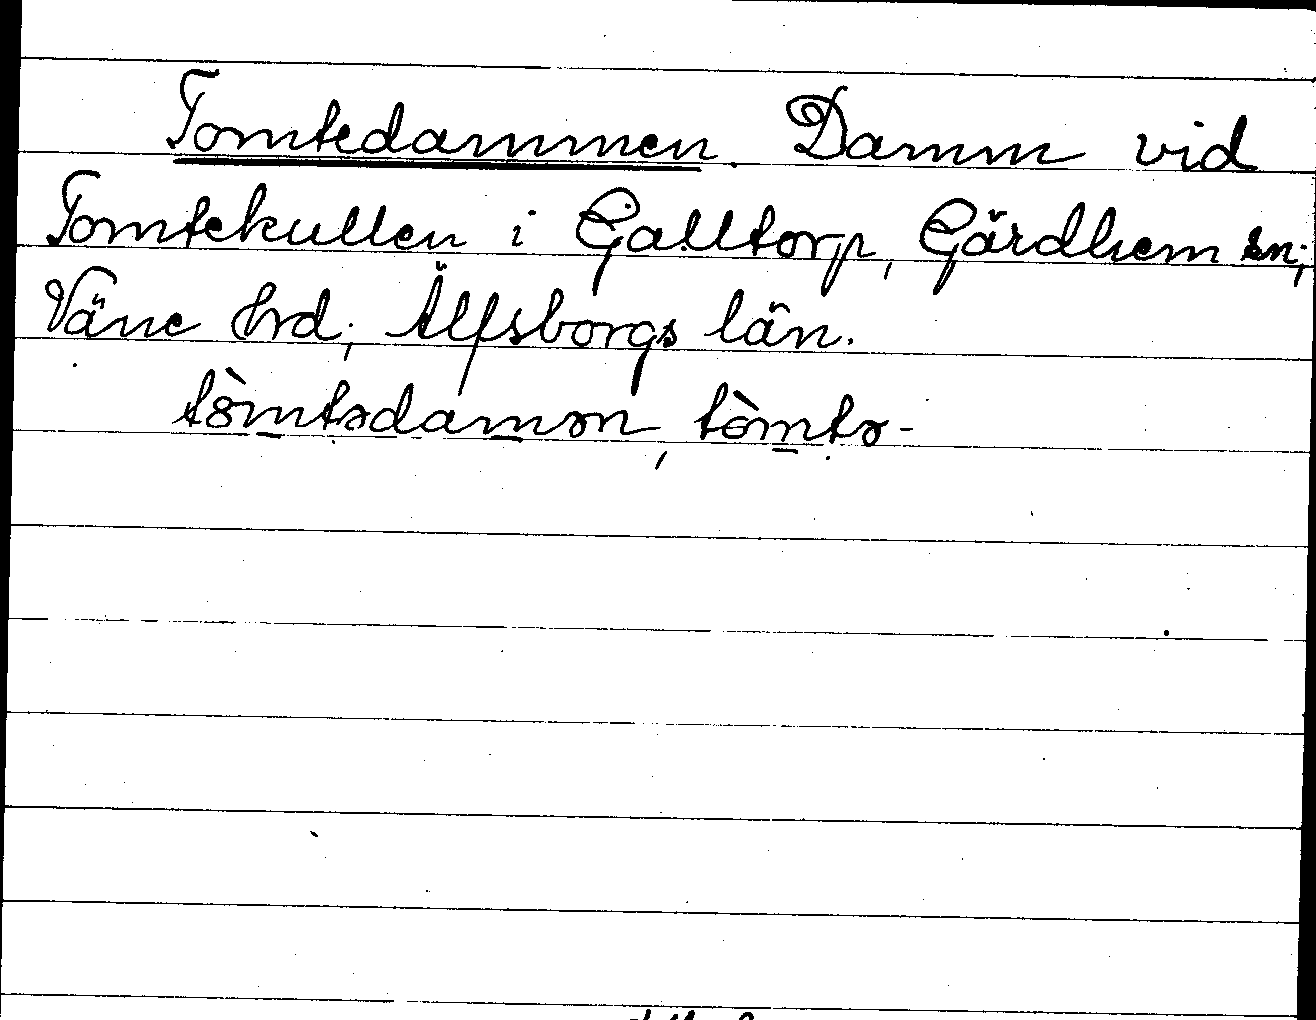 Tomtedammen. Damm vid
Tomtekullen i Galltorp, Gärdhem sn;
Väne hrd; Älfsborgs län.
tòmtədamən, tòmtə-